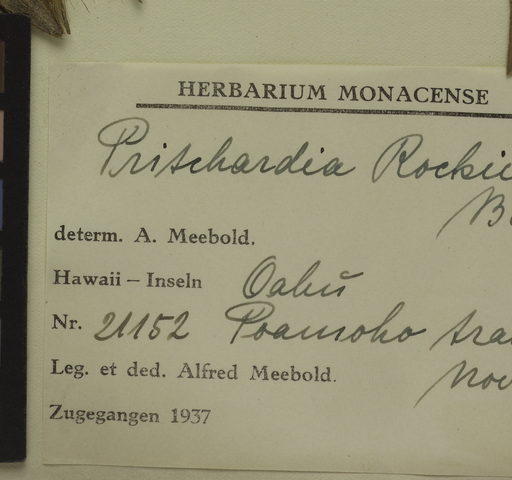 HERBARIUM MONACENSE
Pritchardia
determ. A. Meebold.
Hawaii – Inseln Oahu
Nr. 21152 Poamoho
Leg. et ded. Alfred Meebold.
Zugegangen 1937